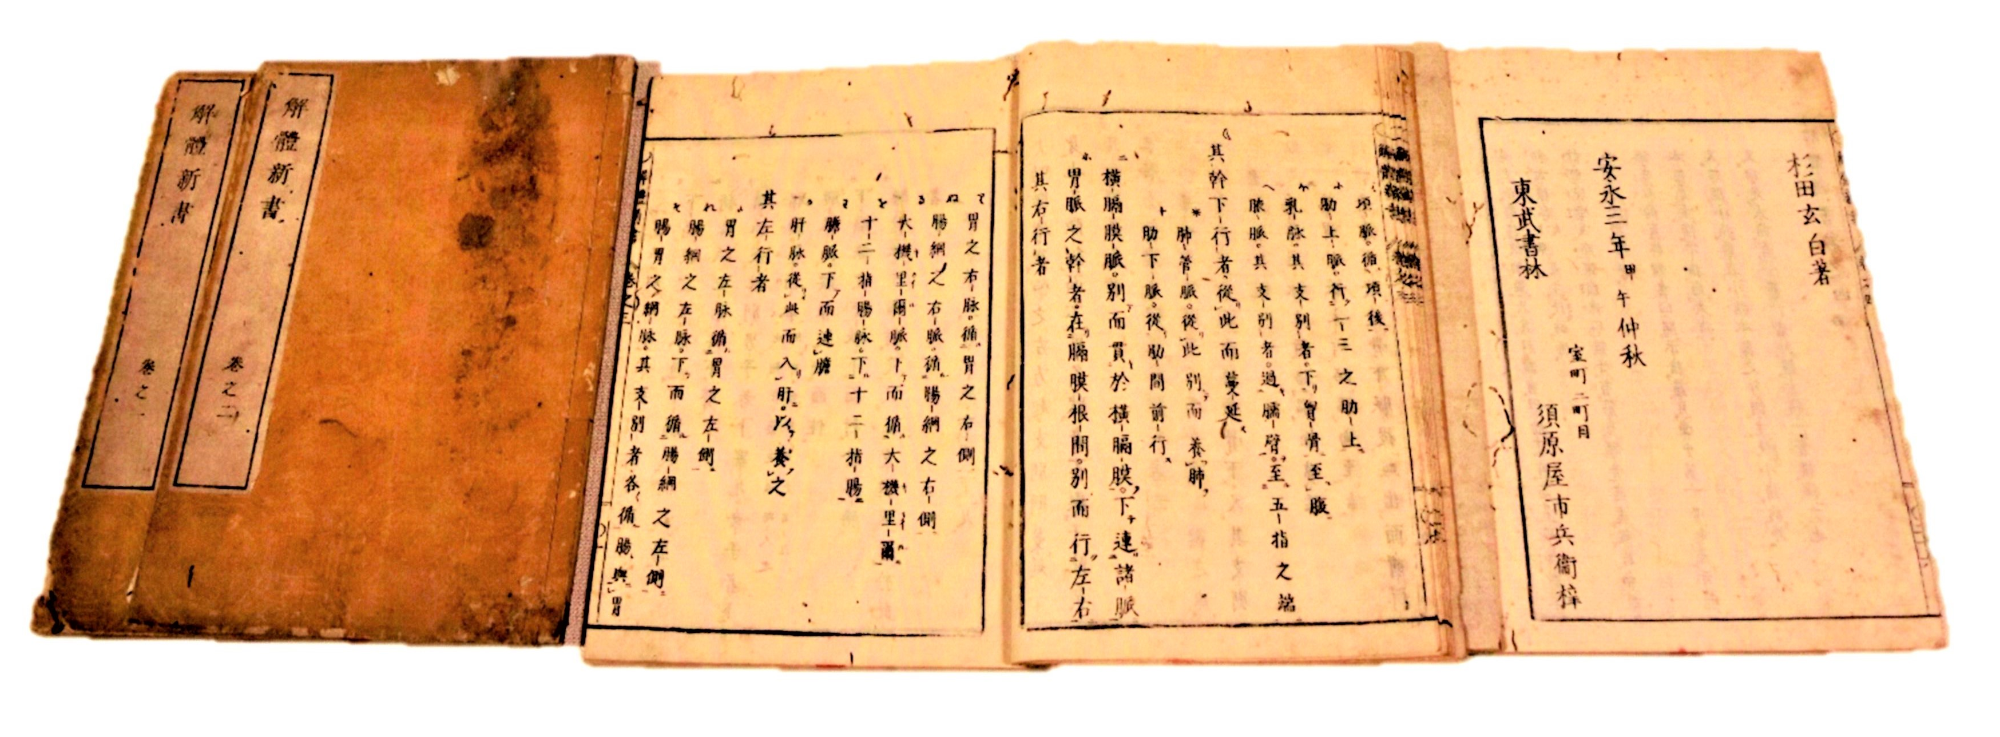 解體新書
卷之一
解體新書
卷之二
項脈循項後
肋上脈行一三之肋上
乳脉其支別者下胷骨至腹
腋脈其支別者過臑臂至五指之端
其幹下行者從此而蔓延
肺管脈從此別而養肺
肋下脈從肋間前行
横膈膜脈別而貫於横膈膜下連諸脈
胃脈之幹者在膈膜根間別而行左右
其右行者
胃之右脉循胃之右側
腸網之右脈循腸網之右側
大機里爾脈下而循大機里爾
十二指腸脉下十二指腸
膽脈下而連膽
肝脉從此而入肝以養之
其左行者
胃之左脉循胃之左側
腸網之左脉下而循腸網之左側
腸胃之網脉其支別者各循腸與胃
杉田玄白著
安永三年甲午仲秋
室町二町目
東武書林
須原屋市兵衞梓